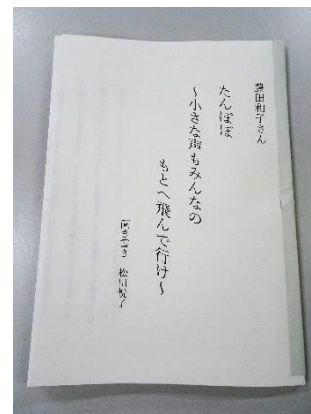 豊田和子さん
たんぽぽ
～小さな声もみんなの
もとへ飛んで行け～
聞き書き 松川悦子